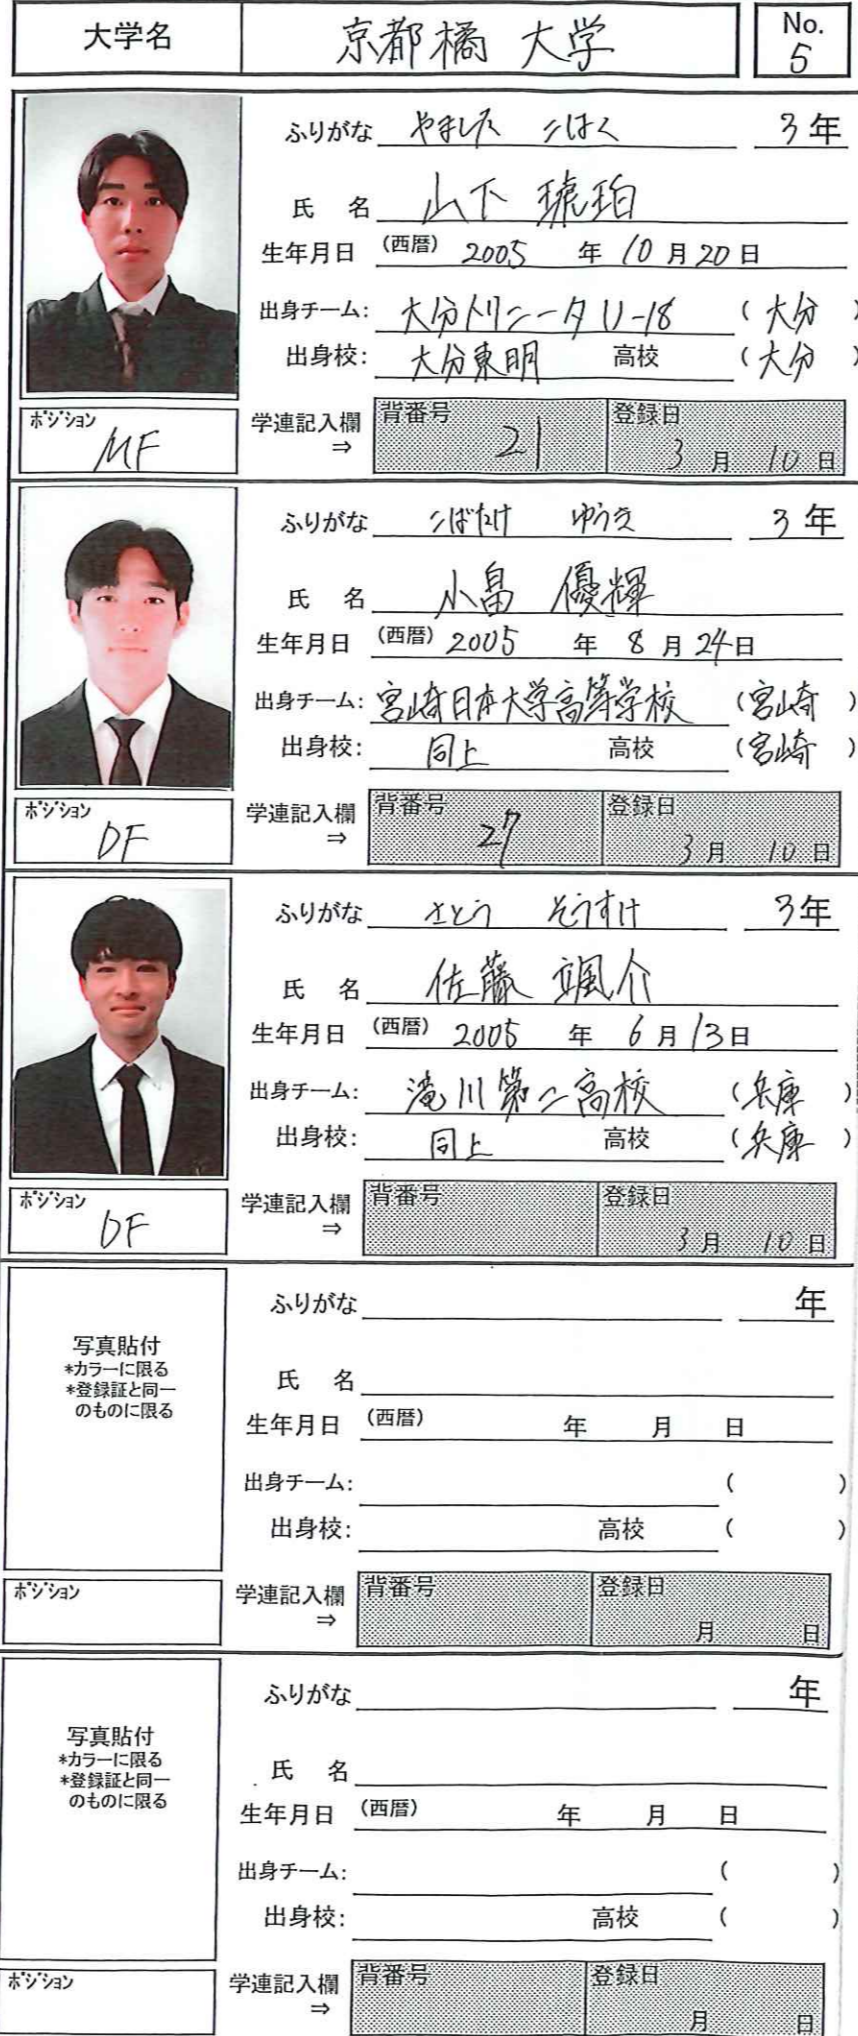 大学名 京都橘 大学 No. 5
ふりがな やました こはく 3年
氏 名 山下 琥珀
生年月日 (西暦) 2005 年 10月20日
出身チーム: 大分トリニータ U-18 (大分)
出身校: 大分東明 高校 (大分)
ポジション MF 学連記入欄⇒ 背番号 21 登録日 3月 10日
ふりがな こばたけ ゆうき 3年
氏 名 小畠 優輝
生年月日 (西暦) 2005 年 8月24日
出身チーム: 宮崎日本大学高等学校 (宮崎)
出身校: 同上 高校 (宮崎)
ポジション DF 学連記入欄⇒ 背番号 27 登録日 3月 10日
ふりがな さとう そうすけ 3年
氏 名 佐藤 颯介
生年月日 (西暦) 2005 年 6月13日
出身チーム: 滝川第二高校 (兵庫)
出身校: 同上 高校 (兵庫)
ポジション DF 学連記入欄⇒ 背番号 登録日 3月 10日
ふりがな 年
写真貼付
*カラーに限る
*登録証と同一
のものに限る
氏 名
生年月日 (西暦) 年 月 日
出身チーム: ( )
出身校: 高校 ( )
ポジション 学連記入欄⇒ 背番号 登録日 月 日
ふりがな 年
写真貼付
*カラーに限る
*登録証と同一
のものに限る
氏 名
生年月日 (西暦) 年 月 日
出身チーム: ( )
出身校: 高校 ( )
ポジション 学連記入欄⇒ 背番号 登録日 月 日